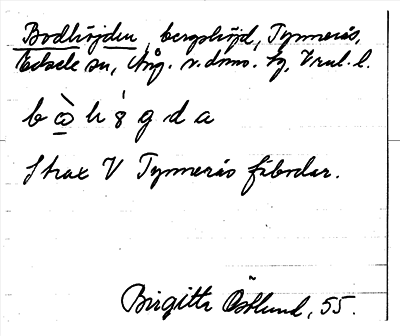 Bodhöjden, bergshöjd, Tynnerås,
Edsele sn, Ång. v. dmo. tg, Vrul. l.
b ò h ɞ́ g d a
Strax V Tynnerås fäbodar.
Birgitta Östlund, 55.